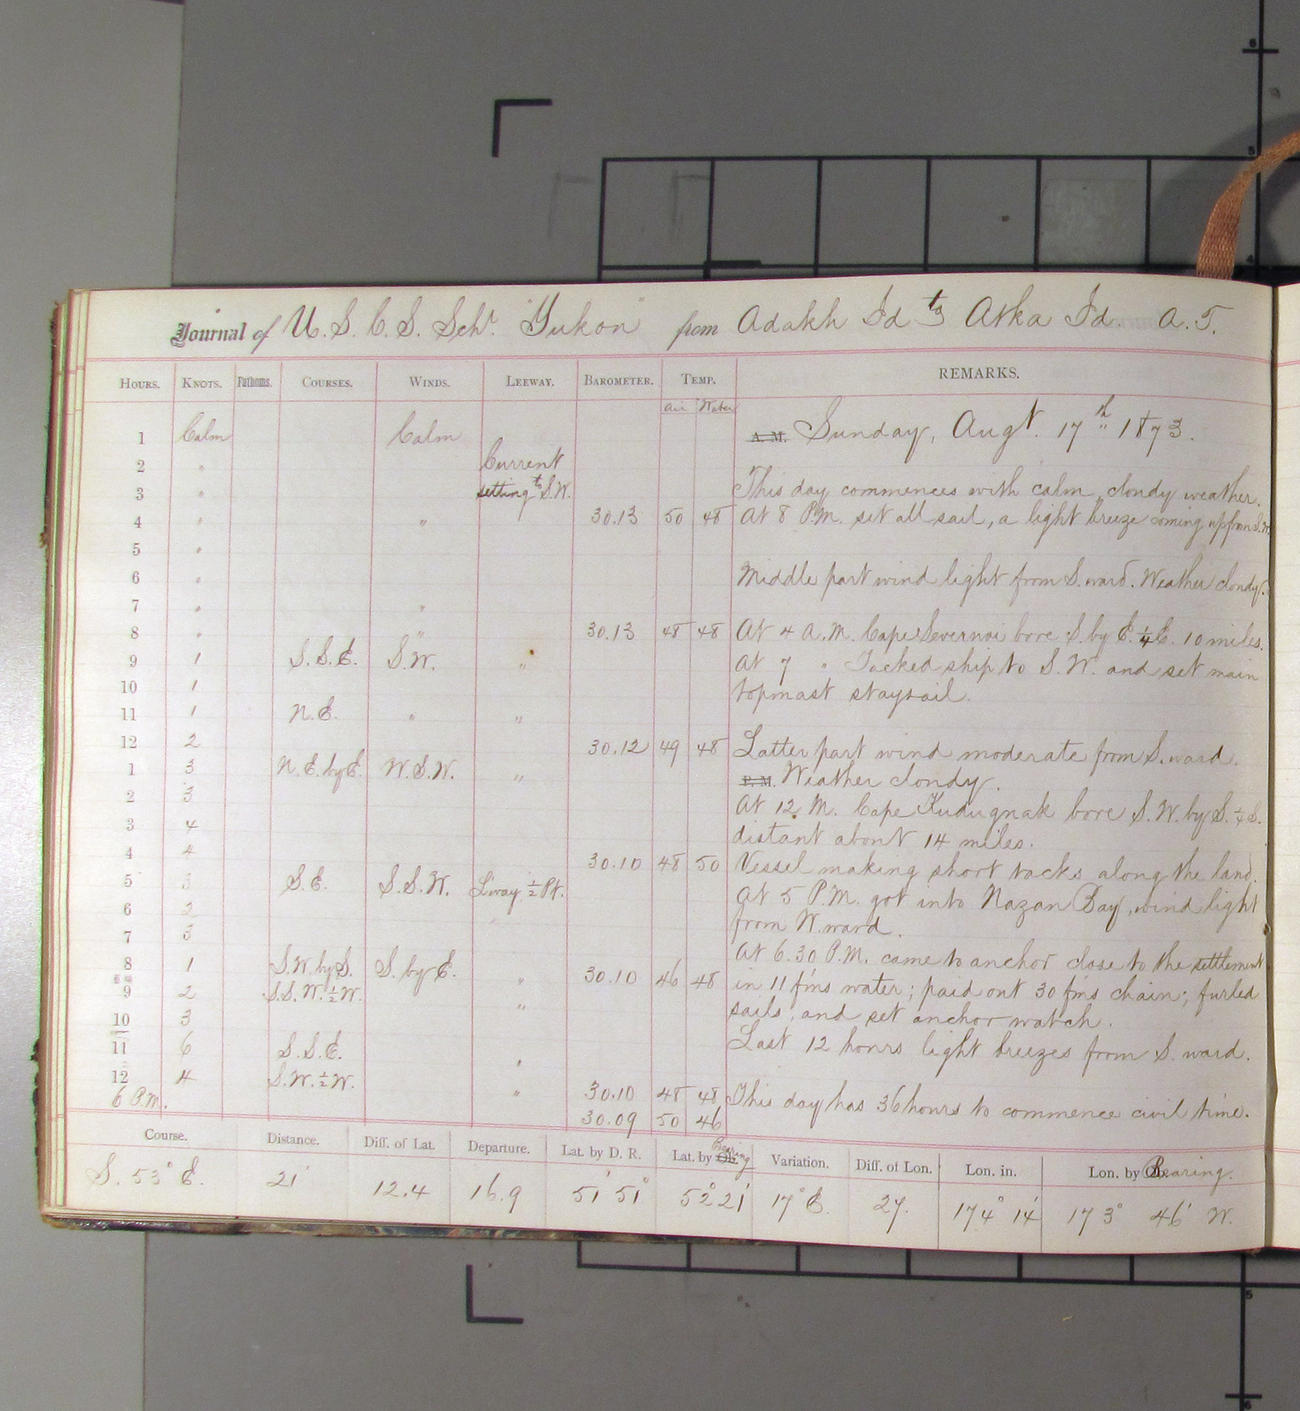 Journal of U.S.C.S. Schr. "Yukon" from Adakh Id to Atka Id. A.T.
HOURS. KNOTS. Fathoms. COURSES. WINDS. LEEWAY. BAROMETER. TEMP. REMARKS.
Air Water
1 Calm Calm A.M. Sunday, Augt. 17th 1873.
2 " Current
3 " setting to S.W. This day commences with calm, cloudy weather.
4 " " 30.13 50 48 At 8 P.M. set all sail, a light breeze coming up from S.W.
5 "
6 " Middle part wind light from S.ward. Weather cloudy.
7 " "
8 " " 30.13 48 48 At 4 A.M. Cape Severnoi bore S. by E. ¼ E. 10 miles.
9 1 S.S.E. S.W. " At 7 " Tacked ship to S.W. and set main
10 1 topmast staysail.
11 1 N.E. " "
12 2 30.12 49 48 Latter part wind moderate from S.ward.
1 3 N.E. by E. W.S.W. " P.M. Weather cloudy.
2 3 At 12 M. Cape Kudugnak bore S.W. by S. ¼ S.
3 4 distant about 14 miles.
4 4 30.10 48 50 Vessel making short tacks along the land.
5 3 S.E. S.S.W. L'way ½ Pt. At 5 P.M. got into Nazan Bay, wind light
6 2 from W.ward.
7 3 At 6.30 P.M. came to anchor close to the settlement
8 1 S.W. by S. S. by E. " 30.10 46 48 in 11 fms water; paid out 30 fms chain; furled
9 2 S.S.W. ½ W. " sails, and set anchor watch.
10 3 Last 12 hours light breezes from S.ward.
11 6 S.S.E. "
12 4 S.W. ½ W. " 30.10 48 48 This day has 36 hours to commence civil time.
6 P.M. 30.09 50 46
Course. Distance. Diff. of Lat. Departure. Lat. by D. R. Lat. by Ob. Bearing Variation. Diff. of Lon. Lon. in. Lon. by Bearing.
S. 53° E. 21' 12.4 16.9 51' 51° 52° 21' 17° E. 27. 174° 14' 173° 46' W.